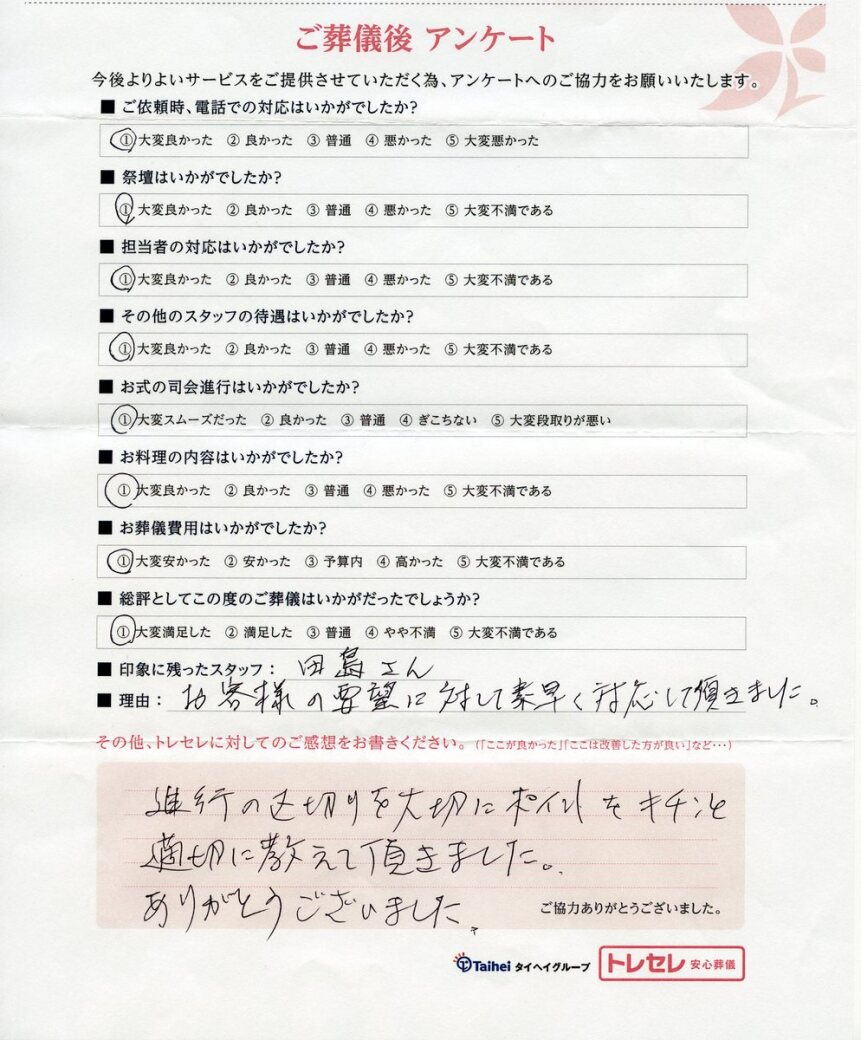 ご葬儀後 アンケート
今後よりよいサービスをご提供させていただく為、アンケートへのご協力をお願いいたします。
■ ご依頼時、電話での対応はいかがでしたか?
① 大変良かった ② 良かった ③ 普通 ④ 悪かった ⑤ 大変悪かった
■ 祭壇はいかがでしたか?
① 大変良かった ② 良かった ③ 普通 ④ 悪かった ⑤ 大変不満である
■ 担当者の対応はいかがでしたか?
① 大変良かった ② 良かった ③ 普通 ④ 悪かった ⑤ 大変不満である
■ その他のスタッフの待遇はいかがでしたか?
① 大変良かった ② 良かった ③ 普通 ④ 悪かった ⑤ 大変不満である
■ お式の司会進行はいかがでしたか?
① 大変スムーズだった ② 良かった ③ 普通 ④ ぎこちない ⑤ 大変段取りが悪い
■ お料理の内容はいかがでしたか?
① 大変良かった ② 良かった ③ 普通 ④ 悪かった ⑤ 大変不満である
■ お葬儀費用はいかがでしたか?
① 大変安かった ② 安かった ③ 予算内 ④ 高かった ⑤ 大変不満である
■ 総評としてこの度のご葬儀はいかがだったでしょうか?
① 大変満足した ② 満足した ③ 普通 ④ やや不満 ⑤ 大変不満である
■ 印象に残ったスタッフ： 田島さん
■ 理由： お客様の要望に対して素早く対応して頂きました。
その他、トレセレに対してのご感想をお書きください。(「ここが良かった」「ここは改善した方が良い」など…)
進行の区切りを大切にポイントをキチンと
適切に教えて頂きました。
ありがとうございました。
ご協力ありがとうございました。
Taihei タイヘイグループ トレセレ 安心葬儀